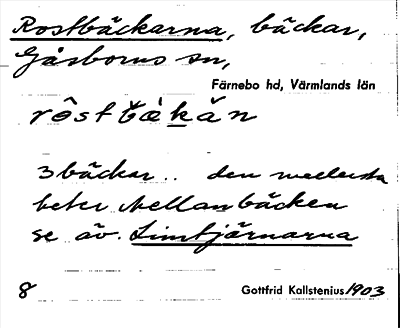 Rostbäckarna, bäckar,
Gåsborns sn,
Färnebo hd, Värmlands län
3 bäckar .. den mellersta
heter Mellanbäcken
se äv. Limtjärnarna
8 Gottfrid Kallstenius 1903